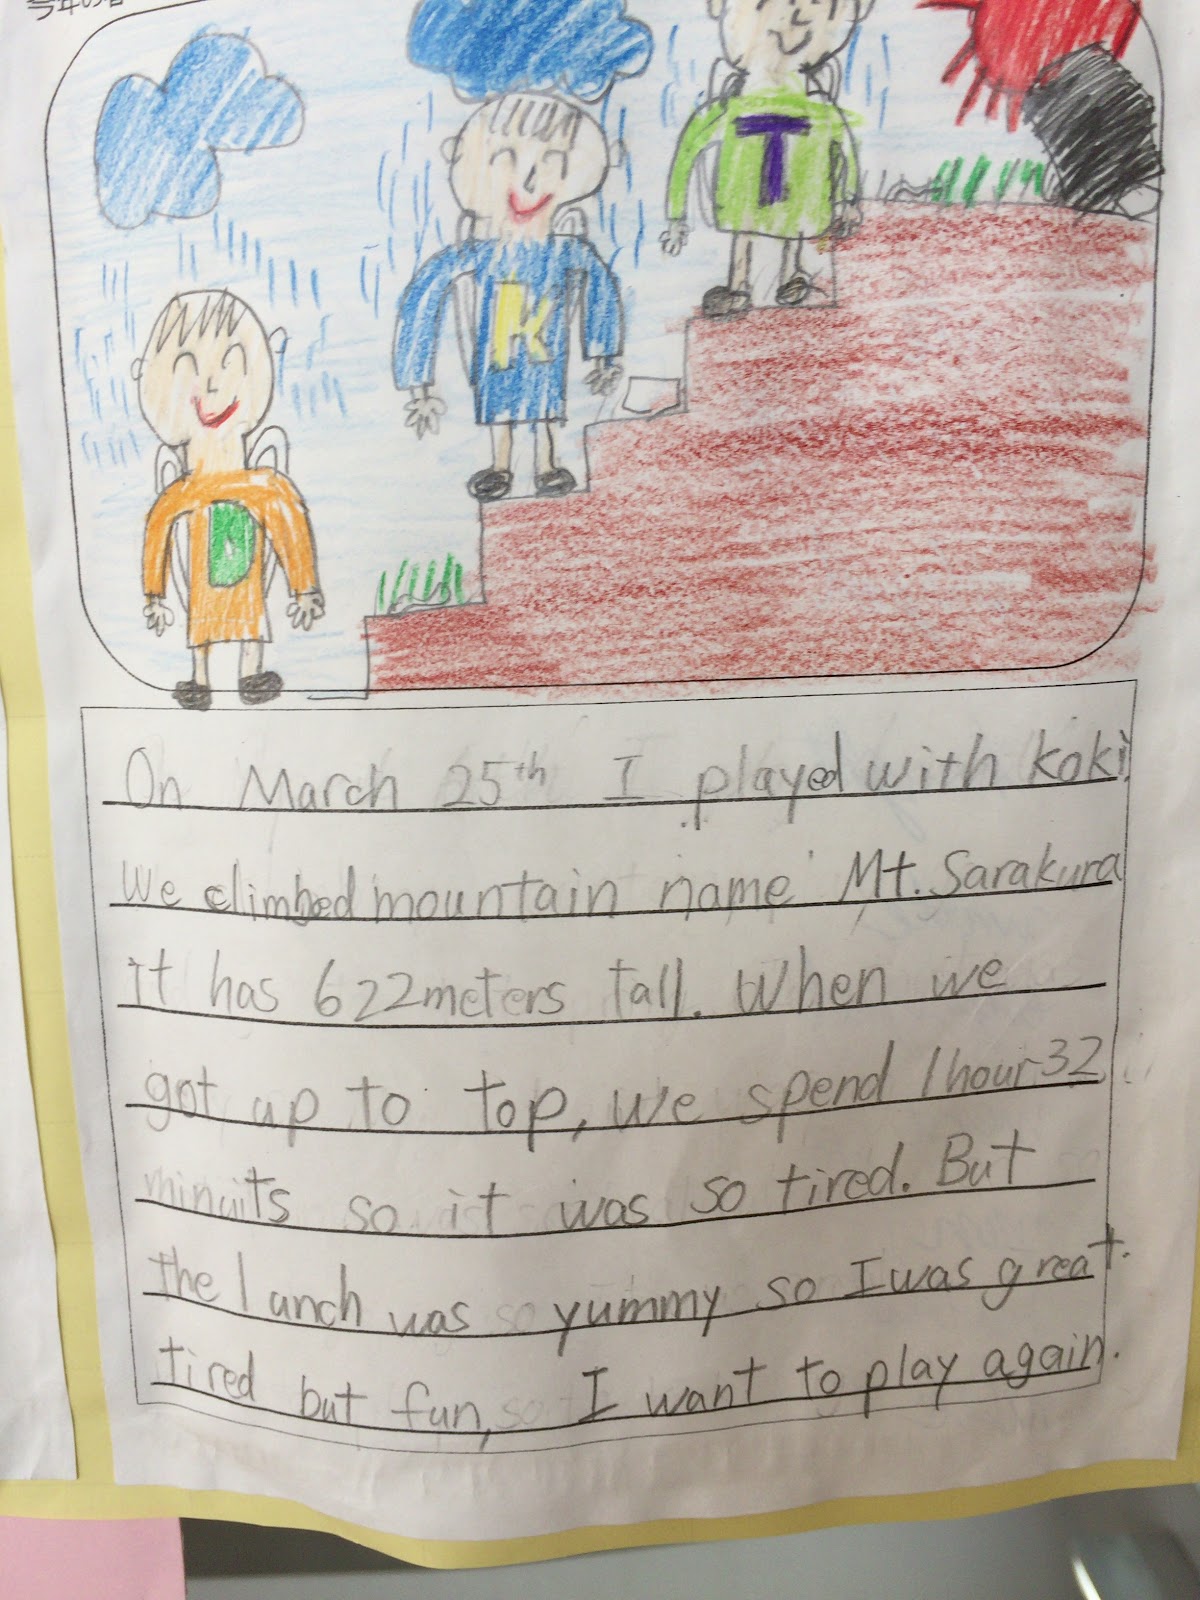 T
K
D
On March 25th I played with koki.
We climbed mountain name Mt. Sarakura
it has 622meters tall. When we
got up to top, we spend 1hour 32
minuits so it was so tired. But
the lunch was yummy so I was great.
tired but fun, I want to play again.